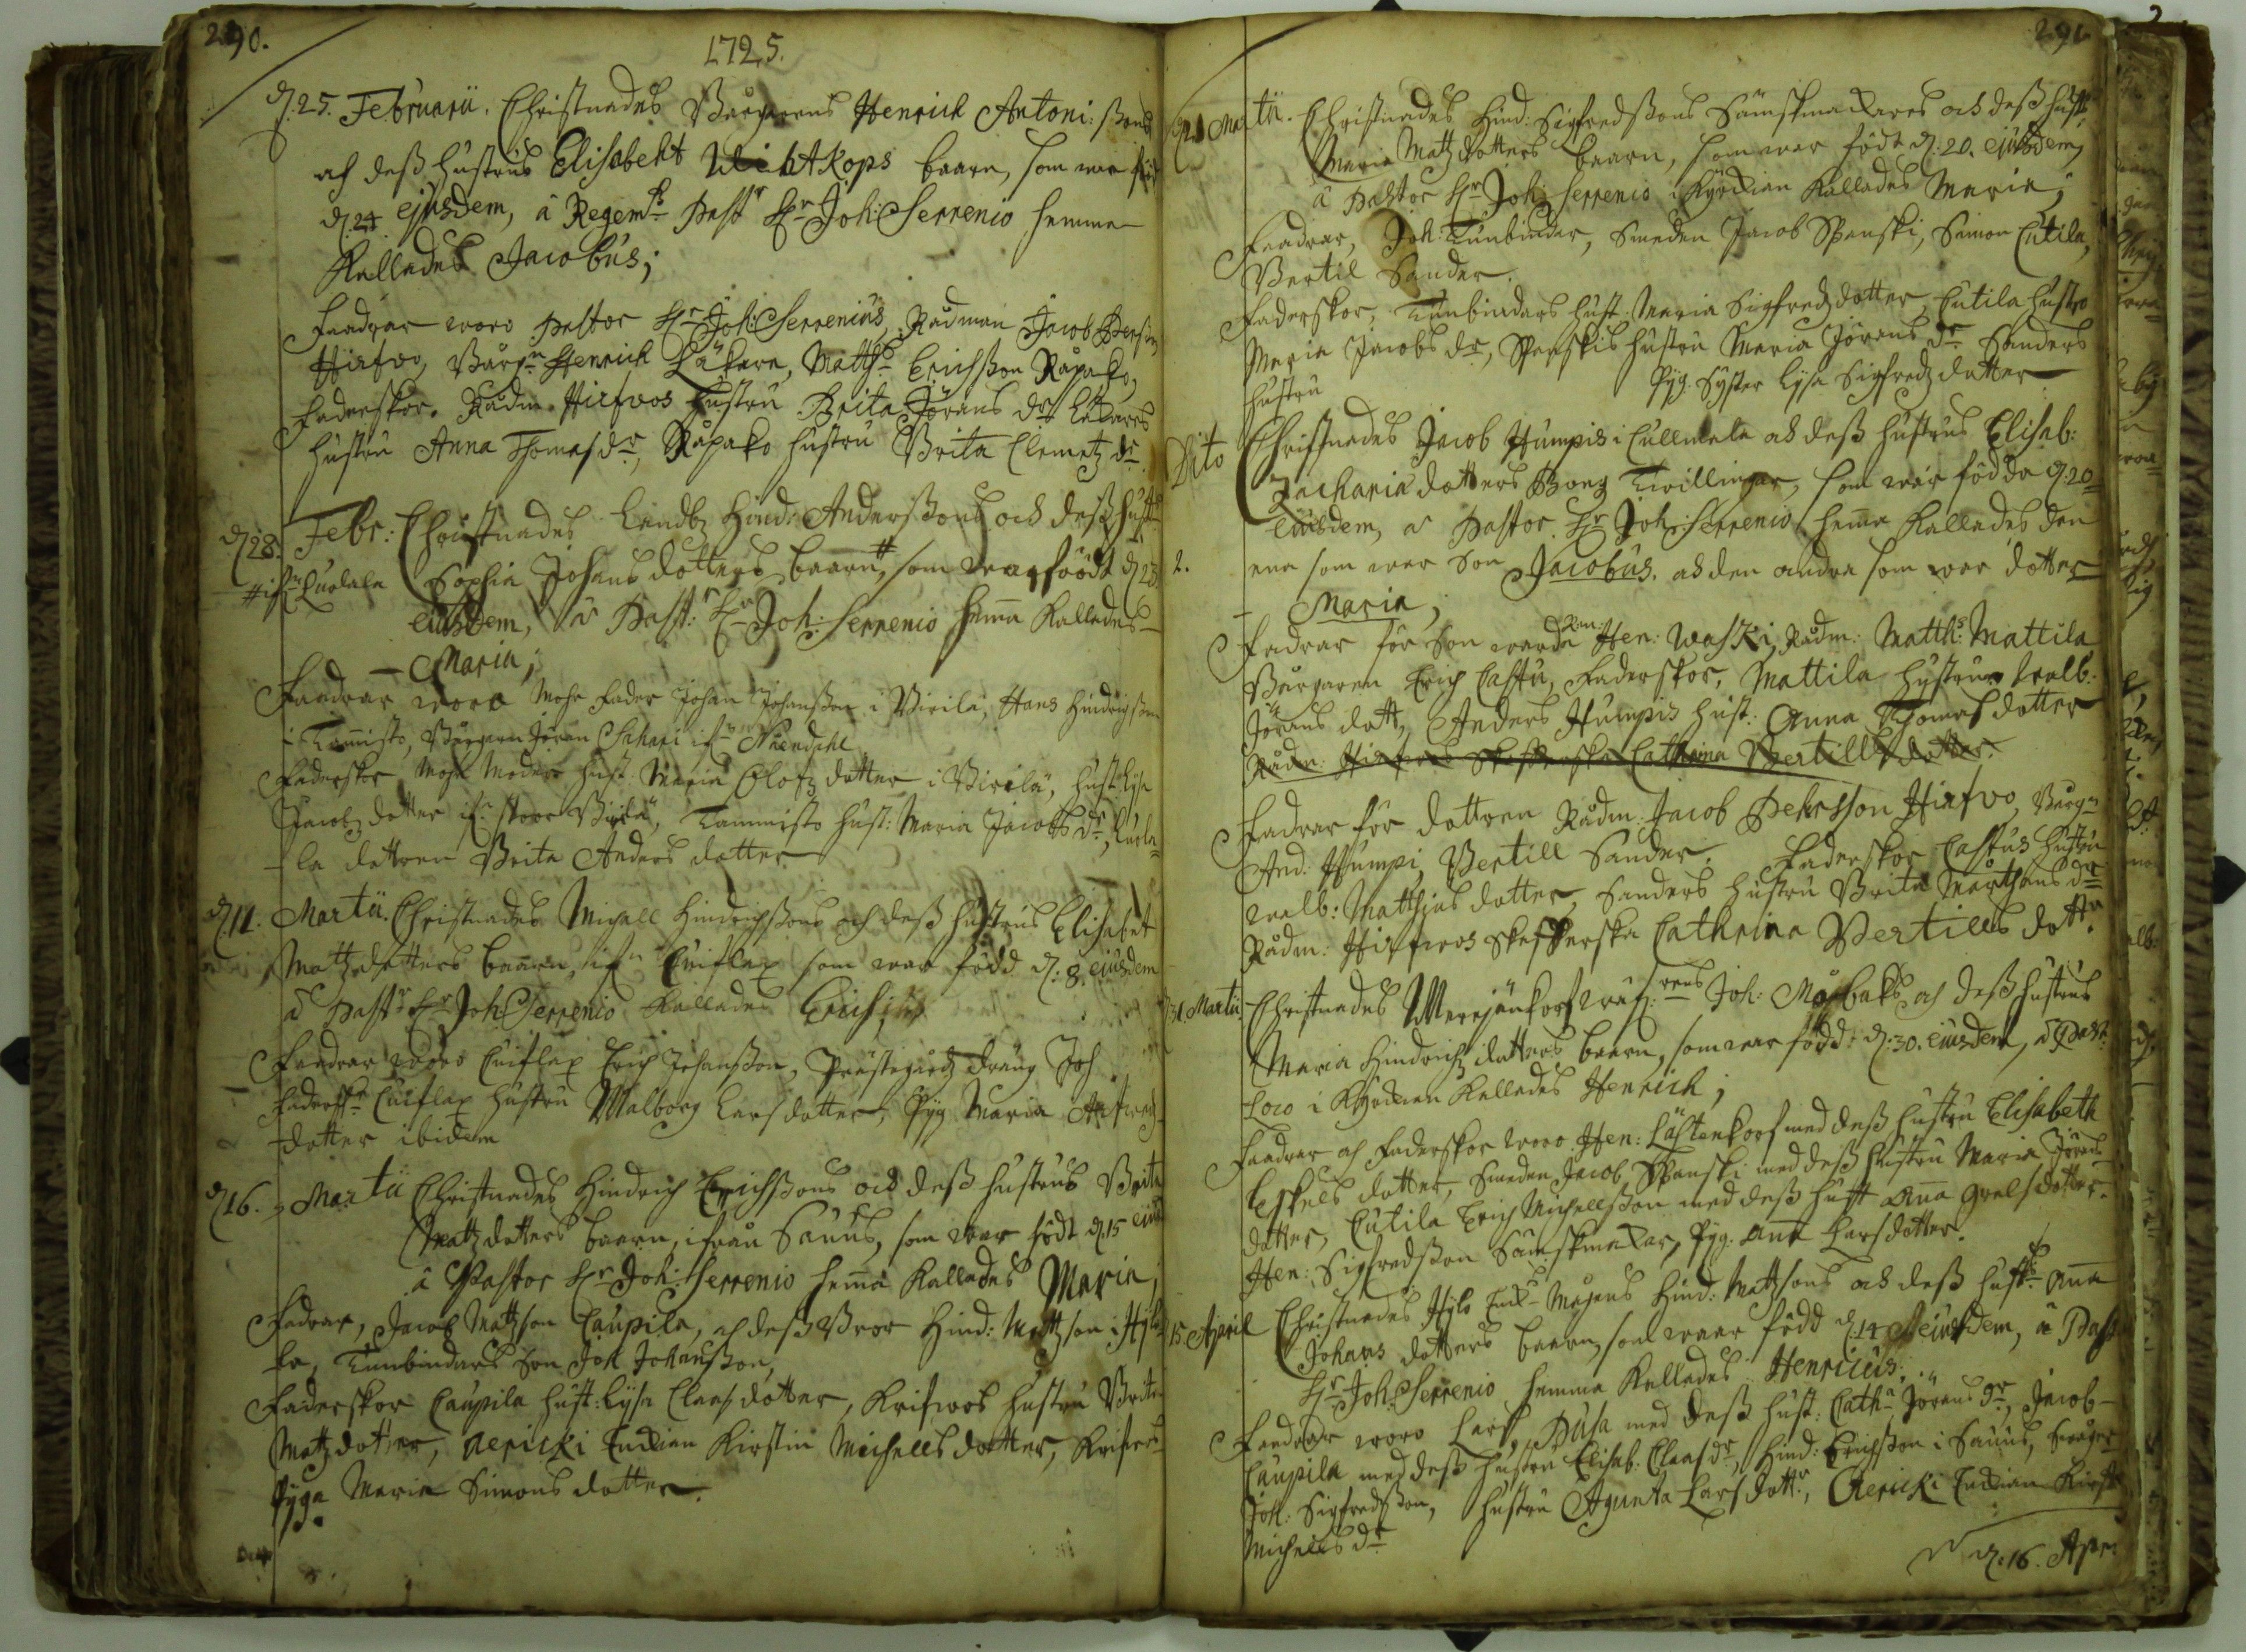 290.
1725.
d. 25. Februarii. Christnades Bårgarens Henrich Antoni: ßons
och deß hustrus Elisabeht Wihtkops baarn, som war
d. 24 ejusdem, à Regem Past. Hr Joh: Serrenio hemma
Kallades Jacobus;
Faadrar woro Pastor Hr Joh: Serrenius, Rådman Jacob
Hirfwo, Bårgn Henrich Läkare, Matths Erichsson Råpako,
Faderskor. Rådm. Hirfwos hustru Brita Jörans dr Läkares
hustru Anna Thomas dr, Råpako hustru Brita Clemetz dr
d. 28. Febr: Christnades Landb. Hind: Anderßons och deß hust
# if: Curlala Sophia Johans dotters baarn #, som war föödt d. 23
eiusdem, à Past: Hr Joh: Serrenio hema Kallades
Maria;
Faadrar woro Mohr Fader Johan Johanßon i Virila, Hans Hindrichsson
i Tammisto, Bårgaren Jöran Sahari ifrån Nåendahl
Faderskor Mohr Moder hust. Maria Olofz dotter i Virilä, hust. Lysa
Jacobz dotter if. stoor Virilä, Tammisto hust: Maria Jacobs dr, Curla-
la dottren Brita Anders dotter
d. 11. Martii. Christnades Michall Hindrichßons och deß hustrus Elisabet
Matz dotters baarn, ifn Cuiflax som war född d. 8. eiusdem
à Past Hr Joh: Serrenio Kallades Erich;
Faadrar woro Cuiflax Erich Johanßon, Prästegårdz dräng Joh
Fadersk. Cuiflax hustru Walborg Lars dotter, Pyg. Maria
dotter ibidem
d. 16. Martii Christnades Hindrich Erichßons och deß hustrus Brita
Matz dotters baarn, ifrån Sauus, som war födt d. 15 eius
à Pastor Hr Joh: Serrenio hema Kallades Maria,
Fadrar, Jacob Matzson Caupila, och deß Broor Hind: Mattzson i
Tunbindars Son Joh Johanßon,
Faderskor Caupila hust: Lysa Claas dotter, Krifwos hustru Brita
Matz dotter, Aericki Enckian Kirstin Michells dotter,
Pyga Maria Simons dotter.
291
d. 21 Martii. Christnades Hind: Sigfredßons Sämskmakares och deß hust.
Maria Matz dotters baarn, som war födt d. 20. eiusdem,
à Pastor Hr Joh: Serrenio i Kyrckian Kallades Maria;
Faadrar, Joh: Tunbinder, Smeden Jacob Spenski, Simon Cutila,
Bertil Sander.
Faderskor, Tunbindars hust. Maria Sigfredz dotter, Cutila hustro
Maria Jacobs dr, Spenskis hustru Maria Jörans dr Sanders
hustru Pyg. Syster Lysa Sigfredz dotter
Dito Christnades Jacob Humpis i Cullmala och deß hustrus Elisab:
Zacharia dotters Twillingar, som war födda d. 20
eiusdem, à Pastor. Hr Joh: Serrenio hema Kallades den
2. ena som war Son Jacobus, och den andra som war dotter
Maria;
Fadrar för Son Hen: Waski, Rådm: Matths Mattila
Bårgaren Erich Castu, Faderskor, Mattila hustru Walb:
Jörans dott, Anders Humpis hust. Anna Thomas dotter
Rådm. Cathrina Bertills dotter.
Fadrar för dottren Rådm: Jacob Pehrsson Hirfwo, Bårgn
And: Humpi, Bertill Sander. Faderskor Castus hustru
Walb: Matthias dotter, Sanders hustru Brita Mårthens dr
Rådm: Hirfwos Cathrina Bertills dottr
31. Martii Christnades Joh: Mårbaks och deß hustrus
Maria Hindrichz dotters baarn, som war född: d. 30. eiusdem, à Past:
Loco i Kyrckian Kallades Henrich;
Faadrar och Faderskor woro Hen: Lästenkorf med deß hustru Elisabeth
Eskels dotter, Smeden Jacob Spenski med deß hustru Maria Jörans
dotter, Cutila Erich Michellsson med deß hust Ana Grels dotter.
Hen: Sigfredsson Sämskmakar, Pyg. Ana Lars dotter.
15 April Christnades Hind: Mattsons och deß hust Ana
Johans dotters baarn, som waar född d. 14 eiusdem, à Past
Hr Joh: Serrenio hemma Kallades Henricus;
Faadrar woro Lars Pusa med deß hust: Cath: Jörans dr, Jacob
Caupila med deß hustru Elisab: Claas dr, Hind: Erichsson i Sauus,
Joh: Sigfredsson, hustru Agneta Lars dottr, Aericki Enckian Kirst
Michells dr
d. 16. Apr: